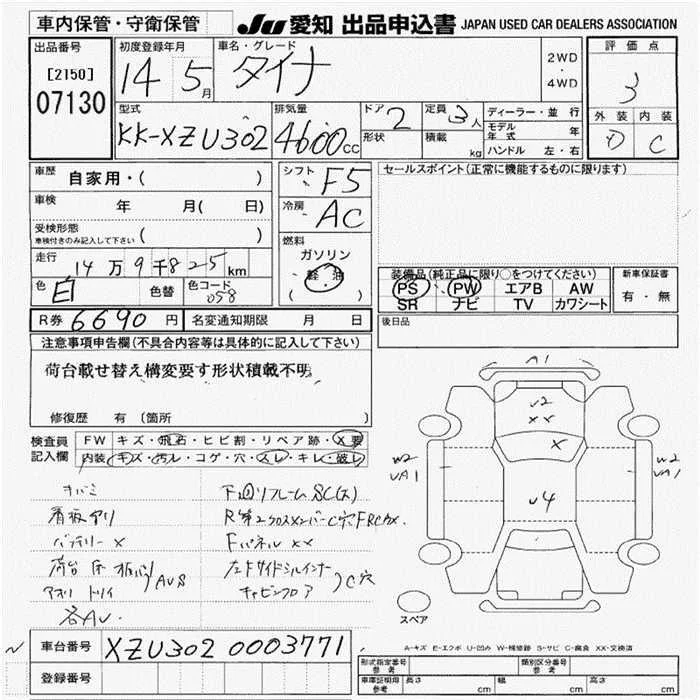 車内保管・守衛保管
JU 愛知 出品申込書 JAPAN USED CAR DEALERS ASSOCIATION
出品番号
[2150]
07130
初度登録年月
14 5月
車名・グレード
ダイナ
2WD
・
4WD
評価点
3
外装 内装
D C
型式
KK-XZU302
排気量
4600cc
ドア 2
形状
定員 3人
積載 kg
ディーラー・並行
モデル年式 年
ハンドル 左・右
車歴 自家用・( )
車検 年 月( 日)
受検形態
車検付きのみ記入して下さい ( )
走行 14万9千825km
色 白 色替 色コード 058
シフト F5
冷房 AC
燃料
ガソリン
軽油
( )
セールスポイント(正常に機能するものに限ります)
装備品(純正品に限り○をつけてください)
PS PW エアB AW
SR ナビ TV カワシート
新車保証書
有・無
R券 6690円 名変通知期限 月 日
後日品
注意事項申告欄(不具合内容等は具体的に記入して下さい)
荷台載せ替え構変要す形状積載不明
修復歴 有(箇所 )
検査員記入欄
FW キズ・飛石・ヒビ割・リペア跡・X要
内装 キズ・汚レ・コゲ・穴・スレ・キレ・破レ
キバミ
看板アリ
バッテリー X
荷台 床
AUS
各AU.
F廻リフレームSC(大)
R第2クロスメンバーC穴
Fパネル XX
左ドサイドシルインナー
キャビンフロア
C穴
A1
U2
XX
X
U4
W2
UA1
W2
UA1
スペア
A-キズ E-エクボ U-凹み W-補修跡 S-サビ C-腐食 XX-交換済
車台番号 XZU302 0003771
登録番号
形式指定番号 参考
類別区分番号 参考
車庫証明用 参考 長さ cm 幅 cm 高さ cm